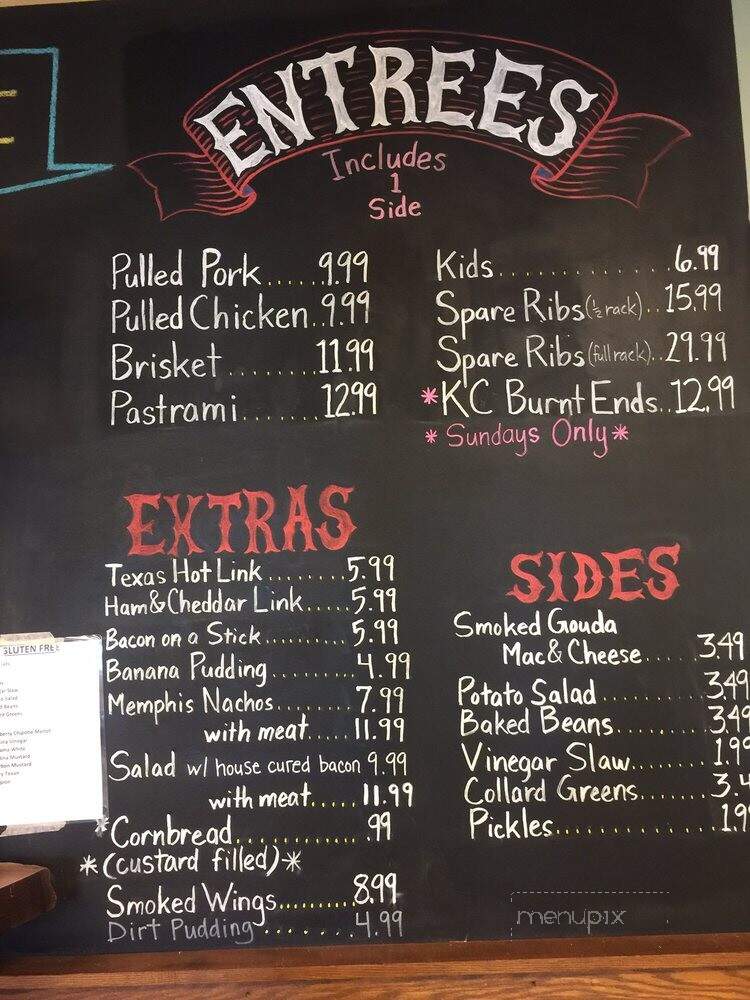 ENTREES
Includes
1
Side
Pulled Pork......9.99
Pulled Chicken..9.99
Brisket........11.99
Pastrami.......12.99
Kids..............6.99
Spare Ribs (½ rack)..15.99
Spare Ribs (full rack)..29.99
*KC Burnt Ends..12.99
* Sundays Only *
EXTRAS
Texas Hot Link........5.99
Ham & Cheddar Link.....5.99
Bacon on a Stick........5.99
Banana Pudding........4.99
Memphis Nachos........7.99
with meat....11.99
Salad w/ house cured bacon 9.99
with meat.....11.99
*Cornbread............99
*(custard filled)*
Smoked Wings.........8.99
Dirt Pudding.......4.99
SIDES
Smoked Gouda
Mac & Cheese.....3.49
Potato Salad..........3.49
Baked Beans.........3.49
Vinegar Slaw.......1.99
Collard Greens.......3.4
Pickles.............1.9
GLUTEN FREE
menupix